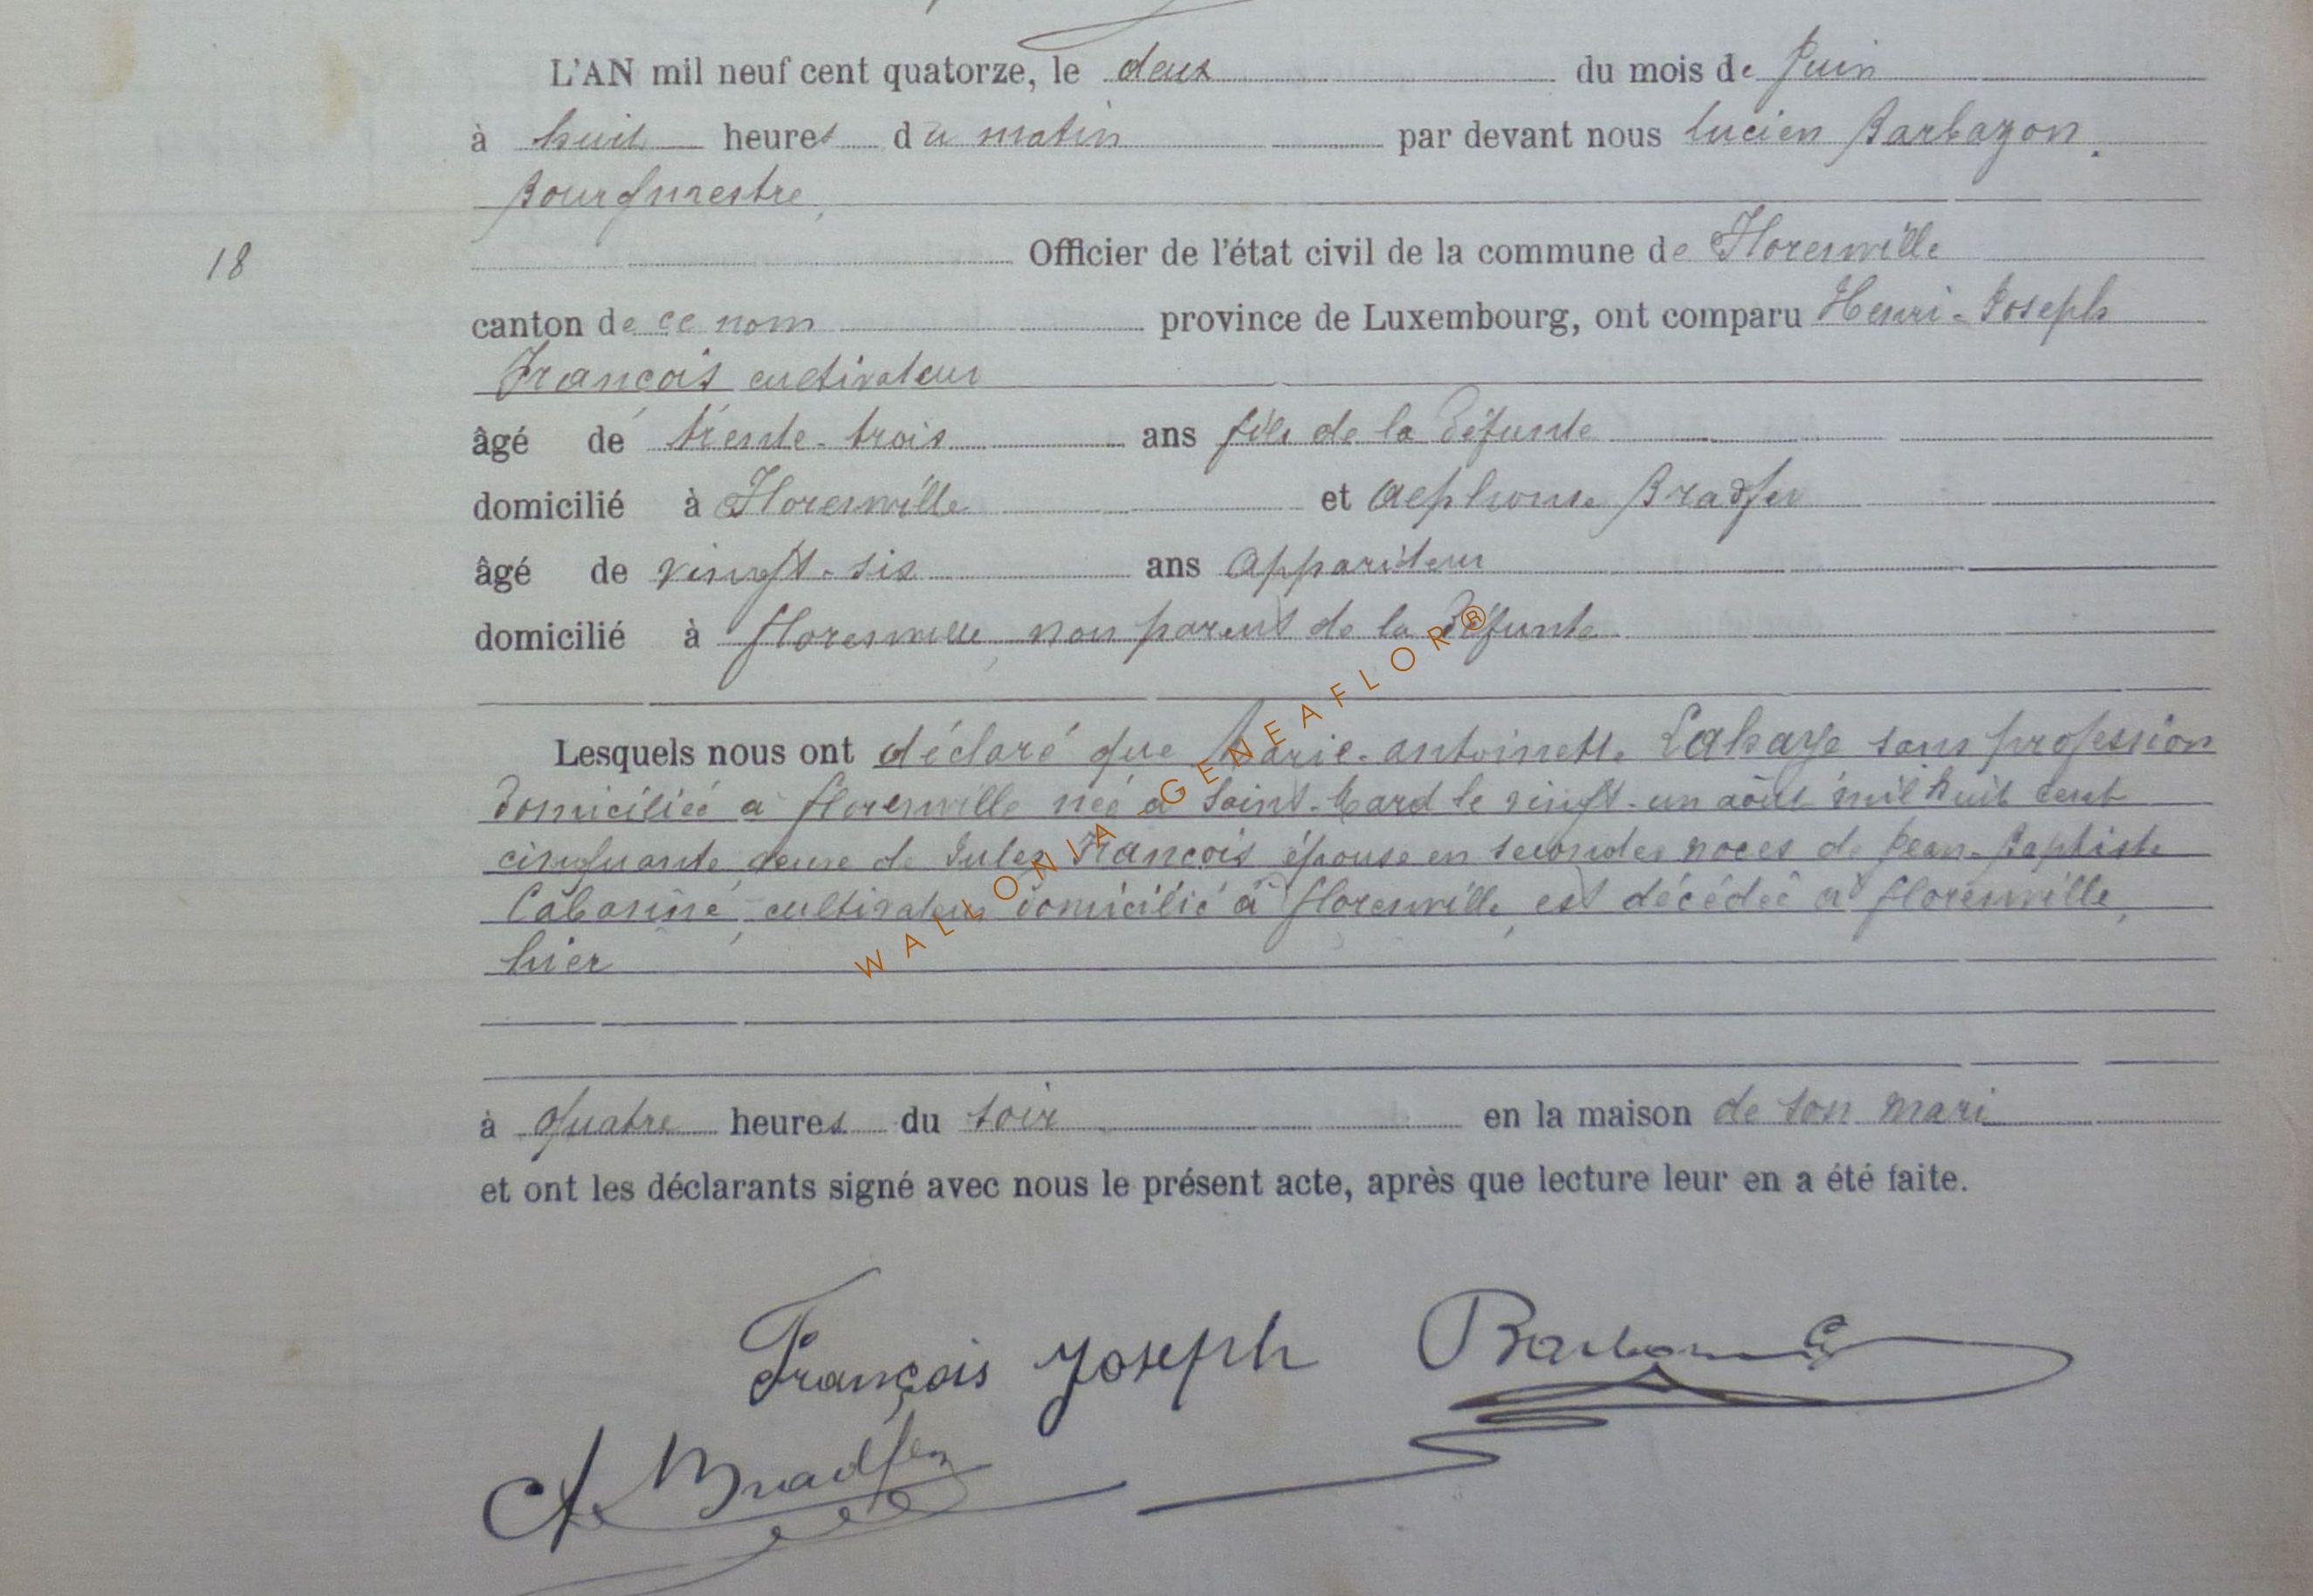 L'AN mil neuf cent quatorze, le deux du mois de Juin
à huit heures du matin par devant nous Lucien Barbazon,
Bourgmestre,
18 Officier de l'état civil de la commune de Florenville
canton de ce nom province de Luxembourg, ont comparu Henri-Joseph
François cultivateur
âgé de trente-trois ans fils de la défunte
domicilié à Florenville et Alphonse Bradfer
âgé de vingt-six ans appariteur
domicilié à Florenville, non parent de la défunte
Lesquels nous ont déclaré que Marie-Antoinette Lahaye sans profession
domiciliée à Florenville née à Saint-Mard le vingt-un août mil huit cent
cinquante, veuve de Jules François épouse en secondes noces de Jean-Baptiste
Labanne, cultivateur domicilié à Florenville, est décédée à Florenville,
hier
à quatre heures du soir en la maison de son mari
et ont les déclarants signé avec nous le présent acte, après que lecture leur en a été faite.
François Joseph Barbazon
A Bradfer
WALLONIA - GENEAFLOR®